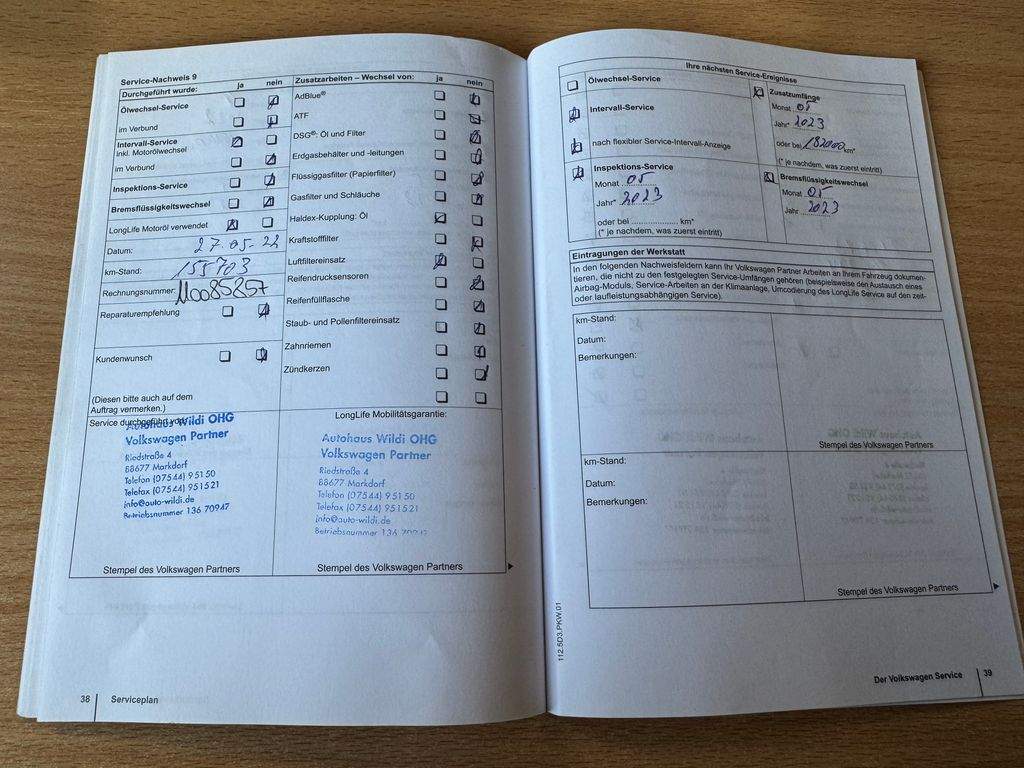 Service-Nachweis 9
Durchgeführt wurde: ja nein
Ölwechsel-Service
im Verbund
Intervall-Service
Inkl. Motorölwechsel
im Verbund
Inspektions-Service
Bremsflüssigkeitswechsel
LongLife Motoröl verwendet
Datum: 27.05.22
km-Stand: 155703
Rechnungsnummer:
Reparaturempfehlung
Kundenwunsch
(Diesen bitte auch auf dem
Auftrag vermerken.)
Zusatzarbeiten – Wechsel von: ja nein
AdBlue®
ATF
DSG®: Öl und Filter
Erdgasbehälter und -leitungen
Flüssiggasfilter (Papierfilter)
Gasfilter und Schläuche
Haldex-Kupplung: Öl
Kraftstofffilter
Luftfiltereinsatz
Reifendrucksensoren
Reifenfüllflasche
Staub- und Pollenfiltereinsatz
Zahnriemen
Zündkerzen
Service durchgeführt von:
Autohaus Wildi OHG
Volkswagen Partner
Riedstraße 4
88677 Markdorf
Telefon (07544) 95150
Telefax (07544) 951521
info@auto-wildi.de
Betriebsnummer 136 70947
Stempel des Volkswagen Partners
LongLife Mobilitätsgarantie:
Autohaus Wildi OHG
Volkswagen Partner
Riedstraße 4
88677 Markdorf
Telefon (07544) 95150
Telefax (07544) 951521
info@auto-wildi.de
Betriebsnummer 136
Stempel des Volkswagen Partners
38 Serviceplan
Ihre nächsten Service-Ereignisse
Ölwechsel-Service
Intervall-Service
nach flexibler Service-Intervall-Anzeige
Inspektions-Service
Monat 05
Jahr* 2023
oder bei .................... km*
(* je nachdem, was zuerst eintritt)
Zusatzumfänge
Monat 05
Jahr* 2023
oder bei 182000 km*
(* je nachdem, was zuerst eintritt)
Bremsflüssigkeitswechsel
Monat 05
Jahr 2023
Eintragungen der Werkstatt
In den folgenden Nachweisfeldern kann Ihr Volkswagen Partner Arbeiten an Ihrem Fahrzeug dokumen-
tieren, die nicht zu den festgelegten Service-Umfängen gehören (beispielsweise den Austausch eines
Airbag-Moduls, Service-Arbeiten an der Klimaanlage, Umcodierung des LongLife Service auf den zeit-
oder laufleistungsabhängigen Service).
km-Stand:
Datum:
Bemerkungen:
Stempel des Volkswagen Partners
km-Stand:
Datum:
Bemerkungen:
Stempel des Volkswagen Partners
112.5D3.PKW.01
Der Volkswagen Service 39